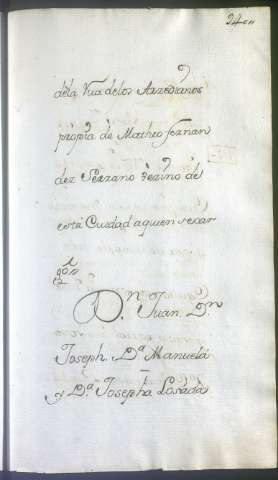 dela Vua delos Arzedianos
propria de Matheo fernan
dez Serrano vezino de
esta Ciudad aquien se car
gô
Dn. Juan, Dn.
Joseph, Da. Manuela
y Da. Josepha Losada